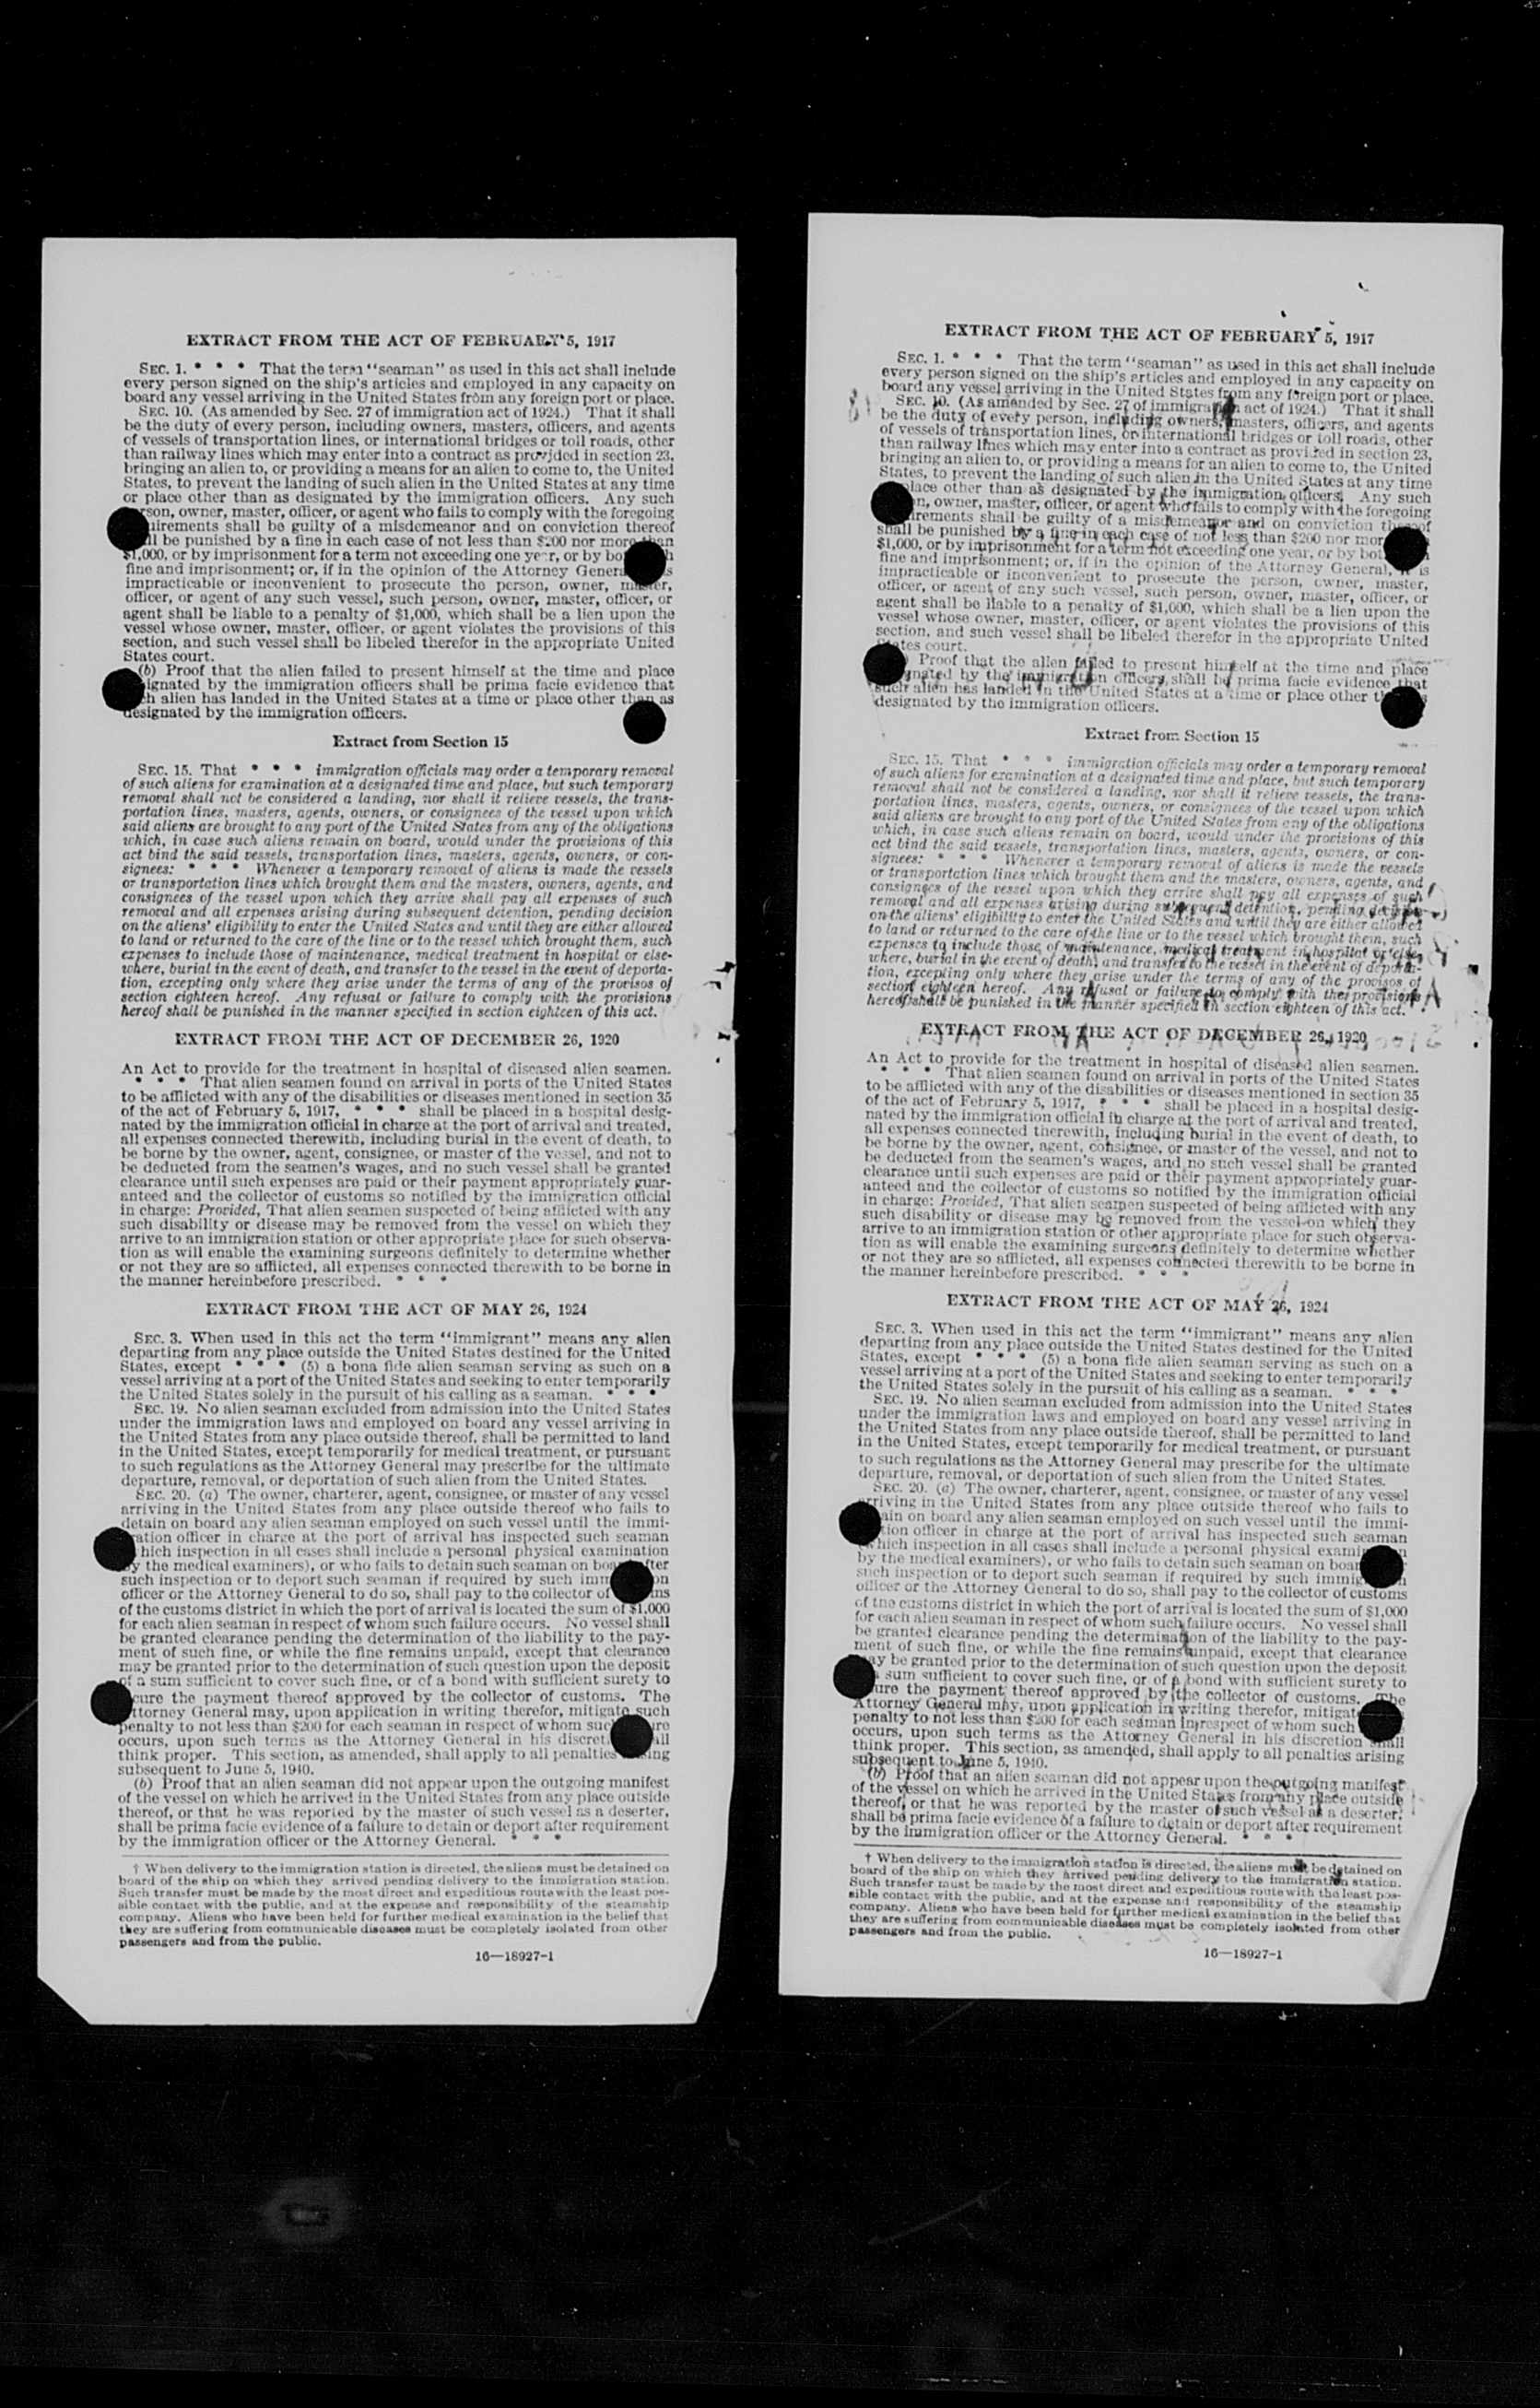 EXTRACT FROM THE ACT OF FEBRUARY 5, 1917
SEC. 1. * * * That the term "seaman" as used in this act shall include
every person signed on the ship's articles and employed in any capacity on
board any vessel arriving in the United States from any foreign port or place.
SEC. 10. (As amended by Sec. 27 of immigration act of 1924.) That it shall
be the duty of every person, including owners, masters, officers, and agents
of vessels of transportation lines, or international bridges or toll roads, other
than railway lines which may enter into a contract as provided in section 23,
bringing an alien to, or providing a means for an alien to come to, the United
States, to prevent the landing of such alien in the United States at any time
or place other than as designated by the immigration officers. Any such
rson, owner, master, officer, or agent who fails to comply with the foregoing
uirements shall be guilty of a misdemeanor and on conviction thereof
ll be punished by a fine in each case of not less than $200 nor more than
$1,000, or by imprisonment for a term not exceeding one year, or by bo h
fine and imprisonment; or, if in the opinion of the Attorney Genera s
impracticable or inconvenient to prosecute the person, owner, master,
officer, or agent of any such vessel, such person, owner, master, officer, or
agent shall be liable to a penalty of $1,000, which shall be a lien upon the
vessel whose owner, master, officer, or agent violates the provisions of this
section, and such vessel shall be libeled therefor in the appropriate United
States court.
(b) Proof that the alien failed to present himself at the time and place
ignated by the immigration officers shall be prima facie evidence that
h alien has landed in the United States at a time or place other than as
designated by the immigration officers.
Extract from Section 15
SEC. 15. That * * * immigration officials may order a temporary removal
of such aliens for examination at a designated time and place, but such temporary
removal shall not be considered a landing, nor shall it relieve vessels, the trans-
portation lines, masters, agents, owners, or consignees of the vessel upon which
said aliens are brought to any port of the United States from any of the obligations
which, in case such aliens remain on board, would under the provisions of this
act bind the said vessels, transportation lines, masters, agents, owners, or con-
signees: * * * Whenever a temporary removal of aliens is made the vessels
or transportation lines which brought them and the masters, owners, agents, and
consignees of the vessel upon which they arrive shall pay all expenses of such
removal and all expenses arising during subsequent detention, pending decision
on the aliens' eligibility to enter the United States and until they are either allowed
to land or returned to the care of the line or to the vessel which brought them, such
expenses to include those of maintenance, medical treatment in hospital or else-
where, burial in the event of death, and transfer to the vessel in the event of deporta-
tion, excepting only where they arise under the terms of any of the provisos of
section eighteen hereof. Any refusal or failure to comply with the provisions
hereof shall be punished in the manner specified in section eighteen of this act.
EXTRACT FROM THE ACT OF DECEMBER 26, 1920
An Act to provide for the treatment in hospital of diseased alien seamen.
* * * That alien seamen found on arrival in ports of the United States
to be afflicted with any of the disabilities or diseases mentioned in section 35
of the act of February 5, 1917, * * * shall be placed in a hospital desig-
nated by the immigration official in charge at the port of arrival and treated,
all expenses connected therewith, including burial in the event of death, to
be borne by the owner, agent, consignee, or master of the vessel, and not to
be deducted from the seamen's wages, and no such vessel shall be granted
clearance until such expenses are paid or their payment appropriately guar-
anteed and the collector of customs so notified by the immigration official
in charge: Provided, That alien seamen suspected of being afflicted with any
such disability or disease may be removed from the vessel on which they
arrive to an immigration station or other appropriate place for such observa-
tion as will enable the examining surgeons definitely to determine whether
or not they are so afflicted, all expenses connected therewith to be borne in
the manner hereinbefore prescribed. * * *
EXTRACT FROM THE ACT OF MAY 26, 1924
SEC. 3. When used in this act the term "immigrant" means any alien
departing from any place outside the United States destined for the United
States, except * * * (5) a bona fide alien seaman serving as such on a
vessel arriving at a port of the United States and seeking to enter temporarily
the United States solely in the pursuit of his calling as a seaman. * * *
SEC. 19. No alien seaman excluded from admission into the United States
under the immigration laws and employed on board any vessel arriving in
the United States from any place outside thereof, shall be permitted to land
in the United States, except temporarily for medical treatment, or pursuant
to such regulations as the Attorney General may prescribe for the ultimate
departure, removal, or deportation of such alien from the United States.
SEC. 20. (a) The owner, charterer, agent, consignee, or master of any vessel
arriving in the United States from any place outside thereof who fails to
detain on board any alien seaman employed on such vessel until the immi-
ation officer in charge at the port of arrival has inspected such seaman
hich inspection in all cases shall include a personal physical examination
by the medical examiners), or who fails to detain such seaman on boa fter
such inspection or to deport such seaman if required by such imm on
officer or the Attorney General to do so, shall pay to the collector of ms
of the customs district in which the port of arrival is located the sum of $1,000
for each alien seaman in respect of whom such failure occurs. No vessel shall
be granted clearance pending the determination of the liability to the pay-
ment of such fine, or while the fine remains unpaid, except that clearance
may be granted prior to the determination of such question upon the deposit
of a sum sufficient to cover such fine, or of a bond with sufficient surety to
cure the payment thereof approved by the collector of customs. The
ttorney General may, upon application in writing therefor, mitigate such
penalty to not less than $200 for each seaman in respect of whom suc ure
occurs, upon such terms as the Attorney General in his discreti ll
think proper. This section, as amended, shall apply to all penalties sing
subsequent to June 5, 1940.
(b) Proof that an alien seaman did not appear upon the outgoing manifest
of the vessel on which he arrived in the United States from any place outside
thereof, or that he was reported by the master of such vessel as a deserter,
shall be prima facie evidence of a failure to detain or deport after requirement
by the immigration officer or the Attorney General. * * *
† When delivery to the immigration station is directed, the aliens must be detained on
board of the ship on which they arrived pending delivery to the immigration station.
Such transfer must be made by the most direct and expeditious route with the least pos-
sible contact with the public, and at the expense and responsibility of the steamship
company. Aliens who have been held for further medical examination in the belief that
they are suffering from communicable diseases must be completely isolated from other
passengers and from the public.
16—18927-1
EXTRACT FROM THE ACT OF FEBRUARY 5, 1917
SEC. 1. * * * That the term "seaman" as used in this act shall include
every person signed on the ship's articles and employed in any capacity on
board any vessel arriving in the United States from any foreign port or place.
SEC. 10. (As amended by Sec. 27 of immigration act of 1924.) That it shall
be the duty of every person, including owners, masters, officers, and agents
of vessels of transportation lines, or international bridges or toll roads, other
than railway lines which may enter into a contract as provided in section 23,
bringing an alien to, or providing a means for an alien to come to, the United
States, to prevent the landing of such alien in the United States at any time
lace other than as designated by the immigration officers. Any such
n, owner, master, officer, or agent who fails to comply with the foregoing
irements shall be guilty of a misdemeanor and on conviction thereof
shall be punished by a fine in each case of not less than $200 nor mor
$1,000, or by imprisonment for a term not exceeding one year, or by bot
fine and imprisonment; or, if in the opinion of the Attorney General, it is
impracticable or inconvenient to prosecute the person, owner, master,
officer, or agent of any such vessel, such person, owner, master, officer, or
agent shall be liable to a penalty of $1,000, which shall be a lien upon the
vessel whose owner, master, officer, or agent violates the provisions of this
section, and such vessel shall be libeled therefor in the appropriate United
States court.
Proof that the alien failed to present himself at the time and place
gnated by the immigration officers shall be prima facie evidence that
such alien has landed in the United States at a time or place other th s
designated by the immigration officers.
Extract from Section 15
SEC. 15. That * * * immigration officials may order a temporary removal
of such aliens for examination at a designated time and place, but such temporary
removal shall not be considered a landing, nor shall it relieve vessels, the trans-
portation lines, masters, agents, owners, or consignees of the vessel upon which
said aliens are brought to any port of the United States from any of the obligations
which, in case such aliens remain on board, would under the provisions of this
act bind the said vessels, transportation lines, masters, agents, owners, or con-
signees: * * * Whenever a temporary removal of aliens is made the vessels
or transportation lines which brought them and the masters, owners, agents, and
consignees of the vessel upon which they arrive shall pay all expenses of such
removal and all expenses arising during subsequent detention, pending decision
on the aliens' eligibility to enter the United States and until they are either allowed
to land or returned to the care of the line or to the vessel which brought them, such
expenses to include those of maintenance, medical treatment in hospital or else-
where, burial in the event of death, and transfer to the vessel in the event of deporta-
tion, excepting only where they arise under the terms of any of the provisos of
section eighteen hereof. Any refusal or failure to comply with the provisions
hereof shall be punished in the manner specified in section eighteen of this act.
EXTRACT FROM THE ACT OF DECEMBER 26, 1920
An Act to provide for the treatment in hospital of diseased alien seamen.
* * * That alien seamen found on arrival in ports of the United States
to be afflicted with any of the disabilities or diseases mentioned in section 35
of the act of February 5, 1917, * * * shall be placed in a hospital desig-
nated by the immigration official in charge at the port of arrival and treated,
all expenses connected therewith, including burial in the event of death, to
be borne by the owner, agent, consignee, or master of the vessel, and not to
be deducted from the seamen's wages, and no such vessel shall be granted
clearance until such expenses are paid or their payment appropriately guar-
anteed and the collector of customs so notified by the immigration official
in charge: Provided, That alien seamen suspected of being afflicted with any
such disability or disease may be removed from the vessel on which they
arrive to an immigration station or other appropriate place for such observa-
tion as will enable the examining surgeons definitely to determine whether
or not they are so afflicted, all expenses connected therewith to be borne in
the manner hereinbefore prescribed. * * *
EXTRACT FROM THE ACT OF MAY 26, 1924
SEC. 3. When used in this act the term "immigrant" means any alien
departing from any place outside the United States destined for the United
States, except * * * (5) a bona fide alien seaman serving as such on a
vessel arriving at a port of the United States and seeking to enter temporarily
the United States solely in the pursuit of his calling as a seaman. * * *
SEC. 19. No alien seaman excluded from admission into the United States
under the immigration laws and employed on board any vessel arriving in
the United States from any place outside thereof, shall be permitted to land
in the United States, except temporarily for medical treatment, or pursuant
to such regulations as the Attorney General may prescribe for the ultimate
departure, removal, or deportation of such alien from the United States.
SEC. 20. (a) The owner, charterer, agent, consignee, or master of any vessel
arriving in the United States from any place outside thereof who fails to
ain on board any alien seaman employed on such vessel until the immi-
tion officer in charge at the port of arrival has inspected such seaman
which inspection in all cases shall include a personal physical exami n
by the medical examiners), or who fails to detain such seaman on boar
such inspection or to deport such seaman if required by such immig n
officer or the Attorney General to do so, shall pay to the collector of customs
of the customs district in which the port of arrival is located the sum of $1,000
for each alien seaman in respect of whom such failure occurs. No vessel shall
be granted clearance pending the determination of the liability to the pay-
ment of such fine, or while the fine remains unpaid, except that clearance
may be granted prior to the determination of such question upon the deposit
sum sufficient to cover such fine, or of a bond with sufficient surety to
ure the payment thereof approved by the collector of customs. The
Attorney General may, upon application in writing therefor, mitigate
penalty to not less than $200 for each seaman in respect of whom such
occurs, upon such terms as the Attorney General in his discretion shall
think proper. This section, as amended, shall apply to all penalties arising
subsequent to June 5, 1940.
(b) Proof that an alien seaman did not appear upon the outgoing manifest
of the vessel on which he arrived in the United States from any place outside
thereof, or that he was reported by the master of such vessel as a deserter,
shall be prima facie evidence of a failure to detain or deport after requirement
by the immigration officer or the Attorney General. * * *
† When delivery to the immigration station is directed, the aliens must be detained on
board of the ship on which they arrived pending delivery to the immigration station.
Such transfer must be made by the most direct and expeditious route with the least pos-
sible contact with the public, and at the expense and responsibility of the steamship
company. Aliens who have been held for further medical examination in the belief that
they are suffering from communicable diseases must be completely isolated from other
passengers and from the public.
16—18927-1